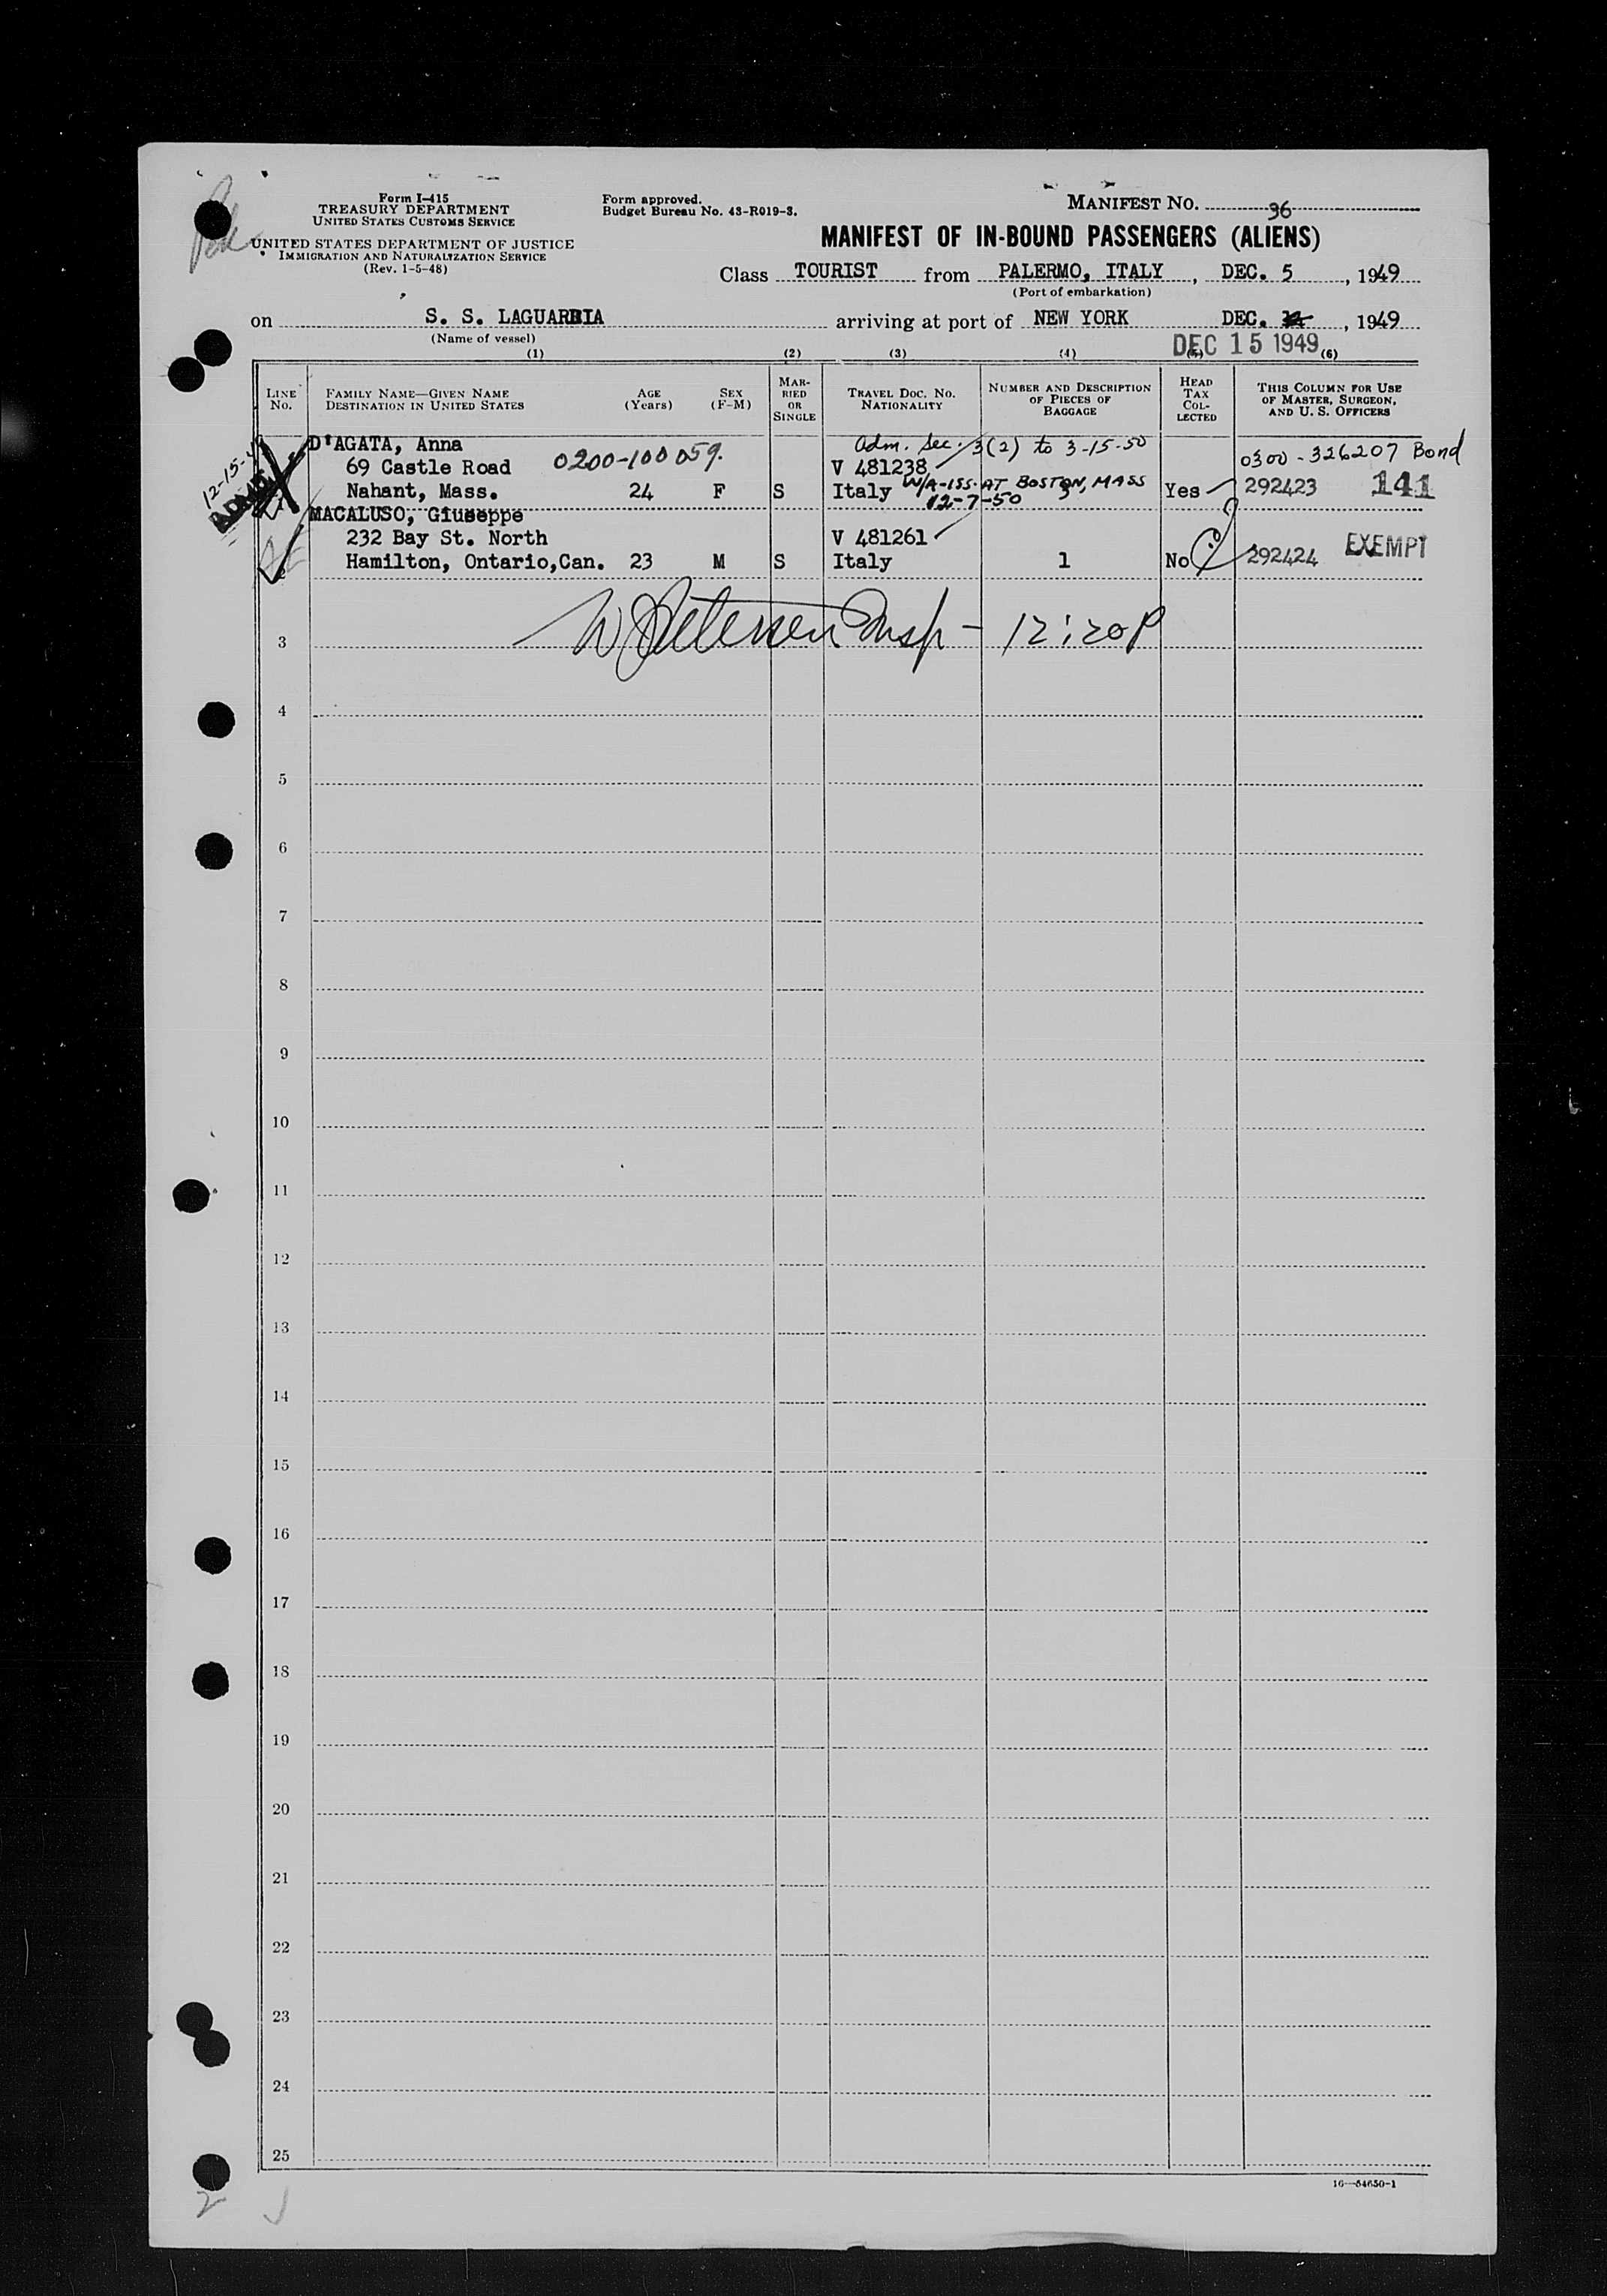 Form I-415
TREASURY DEPARTMENT
UNITED STATES CUSTOMS SERVICE
UNITED STATES DEPARTMENT OF JUSTICE
IMMIGRATION AND NATURALIZATION SERVICE
(Rev. 1-5-48)
Form approved.
Budget Bureau No. 43-R019-3.
MANIFEST NO. 36
MANIFEST OF IN-BOUND PASSENGERS (ALIENS)
Class TOURIST from PALERMO, ITALY, DEC. 5, 1949
(Port of embarkation)
on S. S. LAGUARDIA arriving at port of NEW YORK DEC. 14, 1949
(Name of vessel)
DEC 15 1949
(1) (2) (3) (4) (5) (6)
LINE No. FAMILY NAME—GIVEN NAME DESTINATION IN UNITED STATES AGE (Years) SEX (F-M) MARRIED OR SINGLE TRAVEL DOC. NO. NATIONALITY NUMBER AND DESCRIPTION OF PIECES OF BAGGAGE HEAD TAX COLLECTED THIS COLUMN FOR USE OF MASTER, SURGEON, AND U. S. OFFICERS
12-15-49
ADMD.
D'AGATA, Anna Adm. Sec. 3(2) to 3-15-50
69 Castle Road 0200-100059. V 481238 0300-326207 Bond
Nahant, Mass. 24 F S Italy W/A-ISS. AT BOSTON, MASS 3 Yes 292423 141
12-7-50
MACALUSO, Giuseppe
232 Bay St. North V 481261
Hamilton, Ontario,Can. 23 M S Italy 1 No 292424 EXEMPT
Insp - 12:20P
3
4
5
6
7
8
9
10
11
12
13
14
15
16
17
18
19
20
21
22
23
24
25
16—54650-1
2